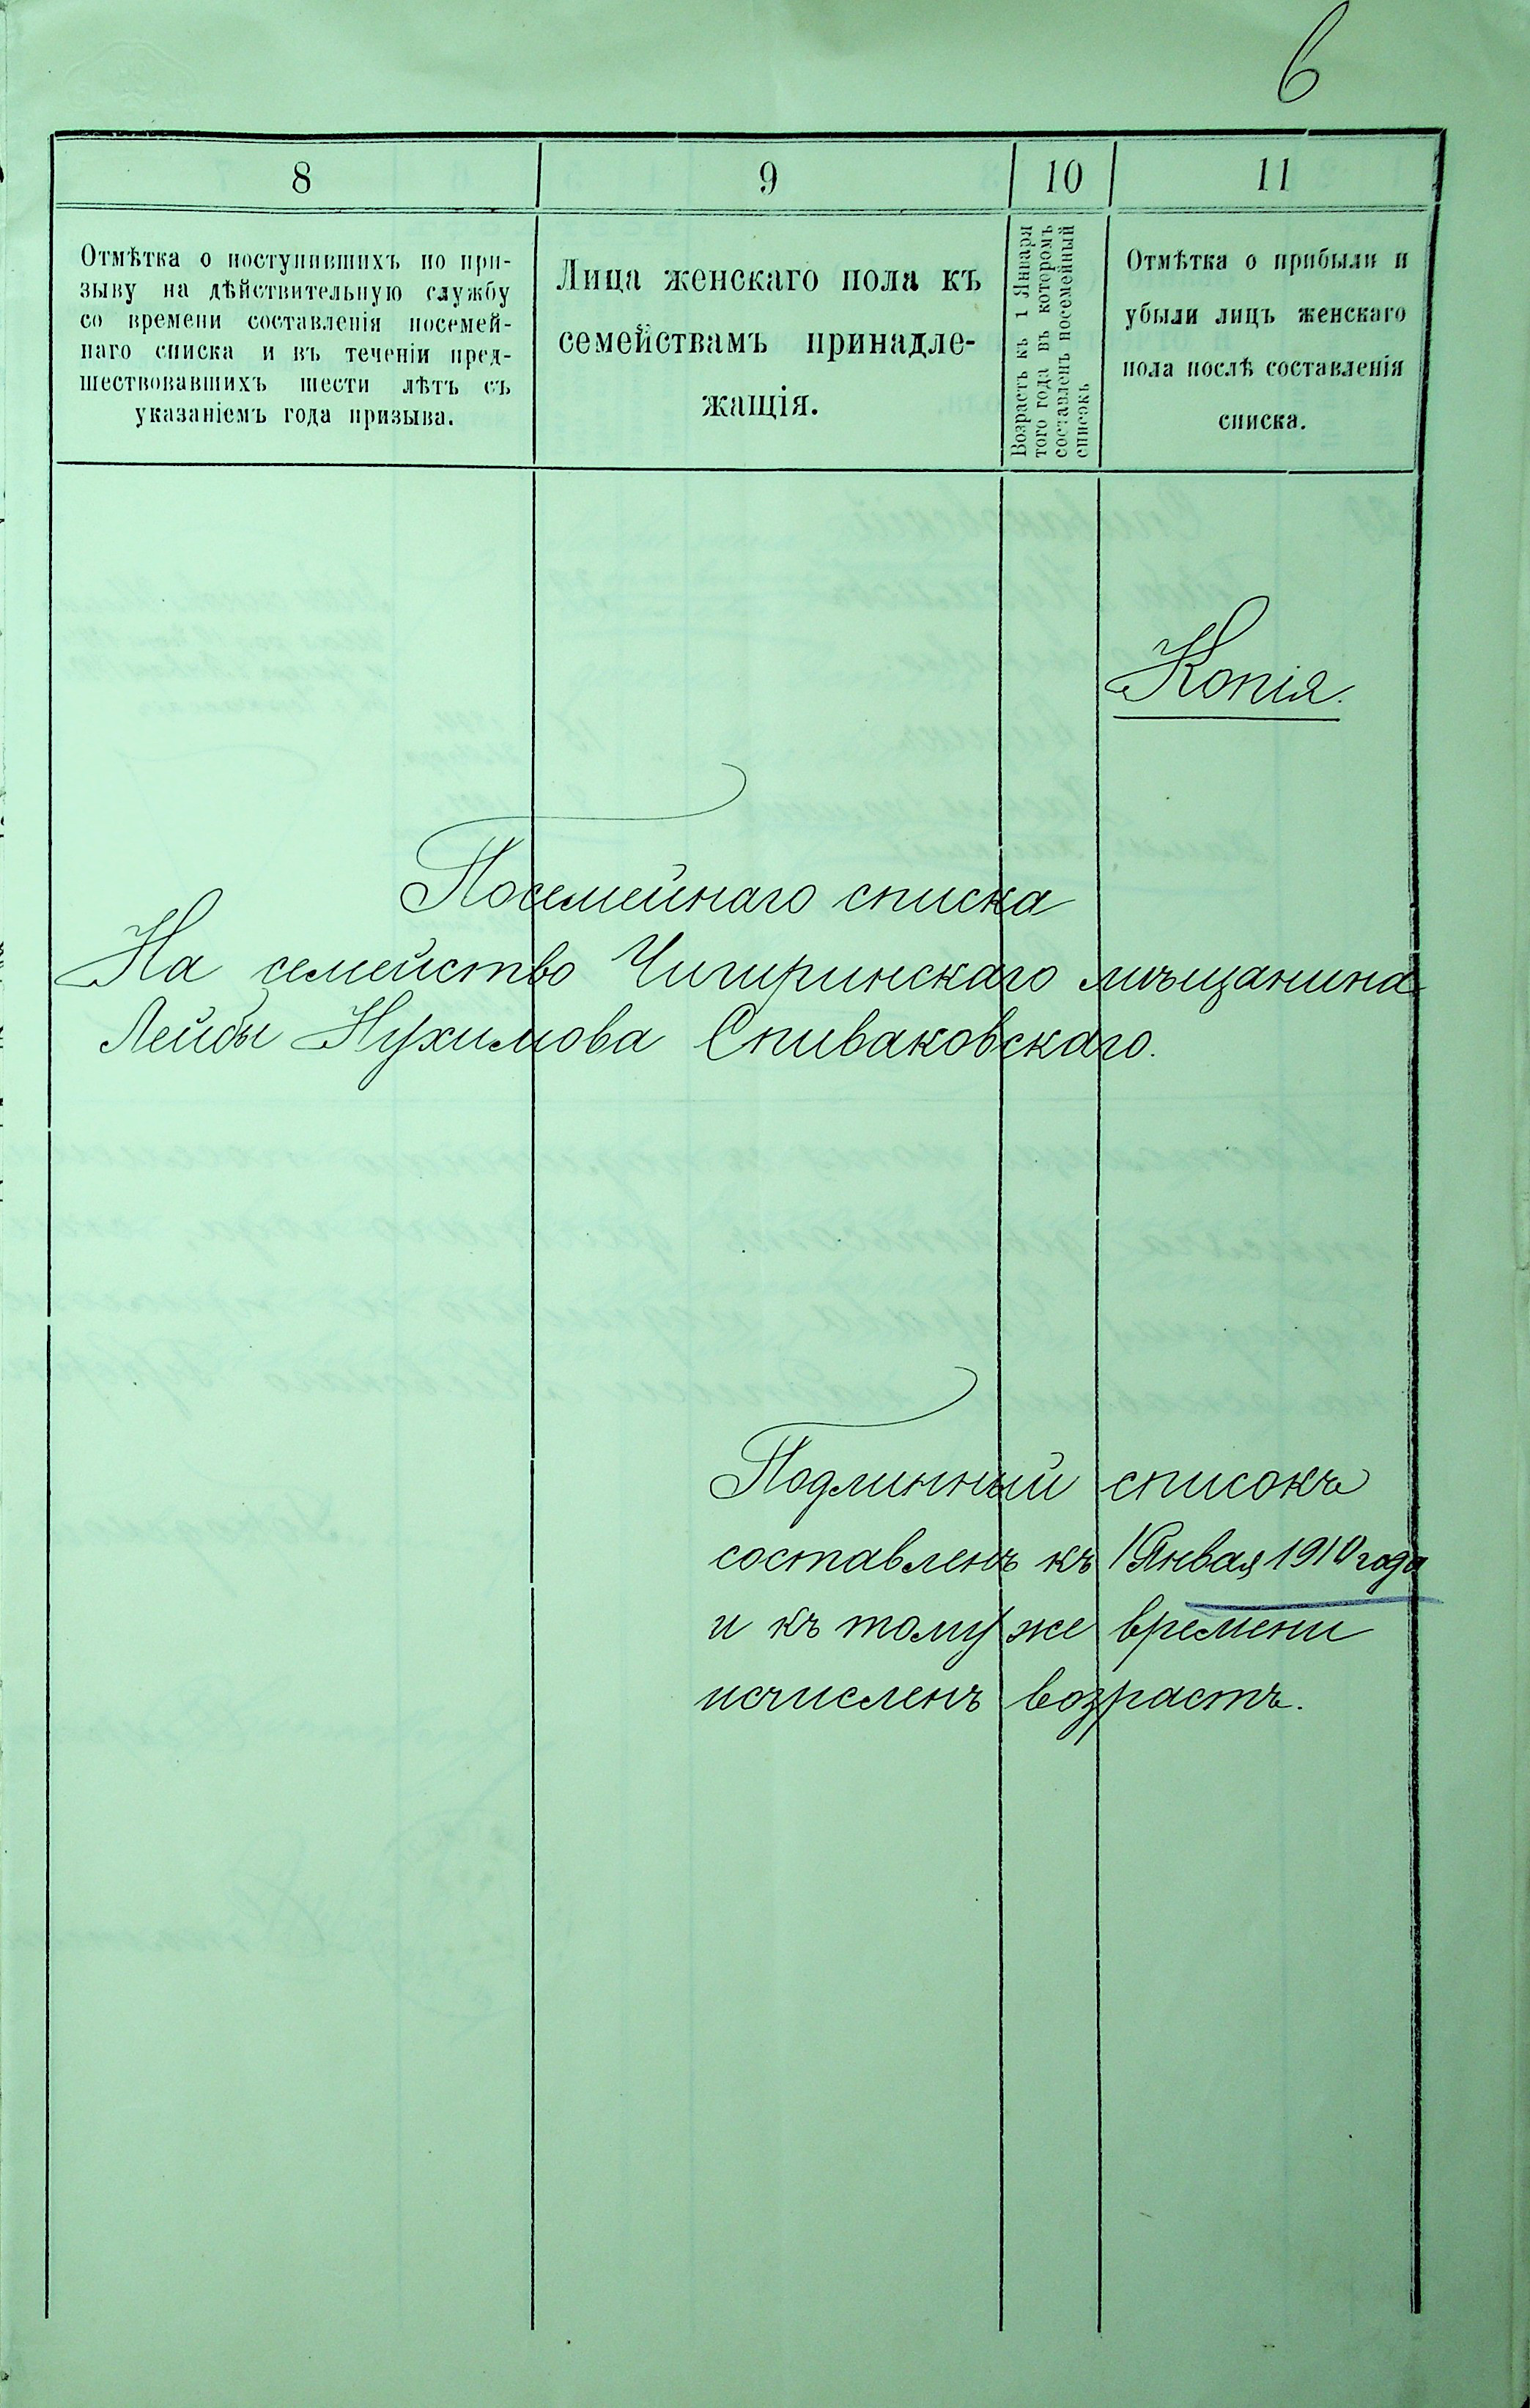 6
8 9 10 11
Отмѣтка о поступившихъ по при-
зыву на дѣйствительную службу
со времени составленія посемей-
наго списка и въ теченіи пред-
шествовавшихъ шести лѣтъ съ
указаніемъ года призыва.
Лица женскаго пола къ
семействамъ принадле-
жащія.
Возрастъ къ 1 Января
того года въ которомъ
составленъ посемейный
списокъ
Отмѣтка о прибыли и
убыли лицъ женскаго
пола послѣ составленія
списка.
Копія.
Посемейнаго списка
На семейство Чигиринскаго мѣщанина
Лейбы Нухимова Спиваковскаго.
Подлинный списокъ
составленъ къ 1 Января 1910 года
и къ тому же времени
исчисленъ возрастъ.